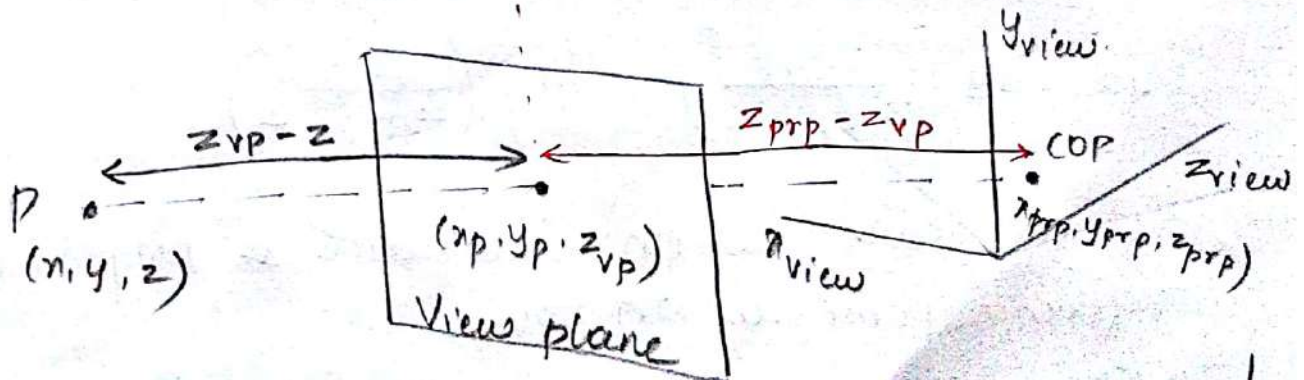 y_view
z_vp - z
z_prp - z_vp
COP
z_view
P
(x, y, z)
(x_p, y_p, z_vp)
x_view
x_prp, y_prp, z_prp)
View plane